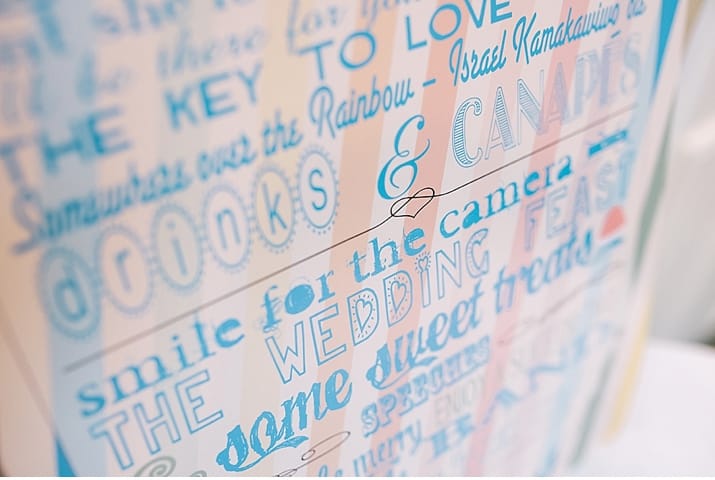 for you
be there
THE KEY TO LOVE
Somewhere over the Rainbow - Israel Kamakawiwo'ole
drinks & CANAPES
smile for the camera
THE WEDDING FEAST
some sweet treats
SPEECHES
ENJOY
be merry
BAND